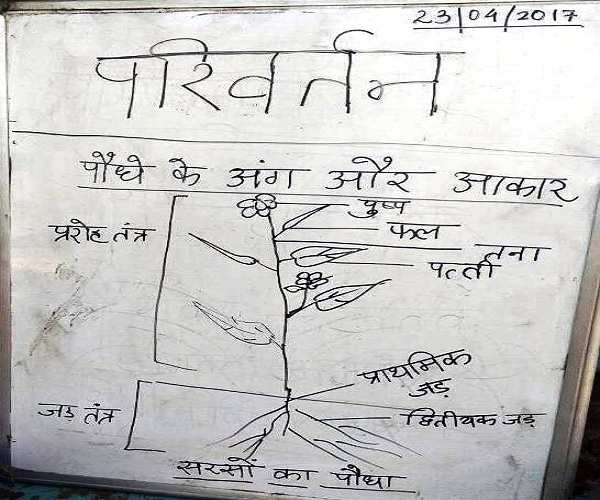 23/04/2017
परिवर्तन
पौधे के अंग और आकार
पुष्प
फल
प्ररोह तंत्र
तना
पत्ती
प्राथमिक
जड़
जड़ तंत्र
द्वितीयक जड़
सरसों का पौधा